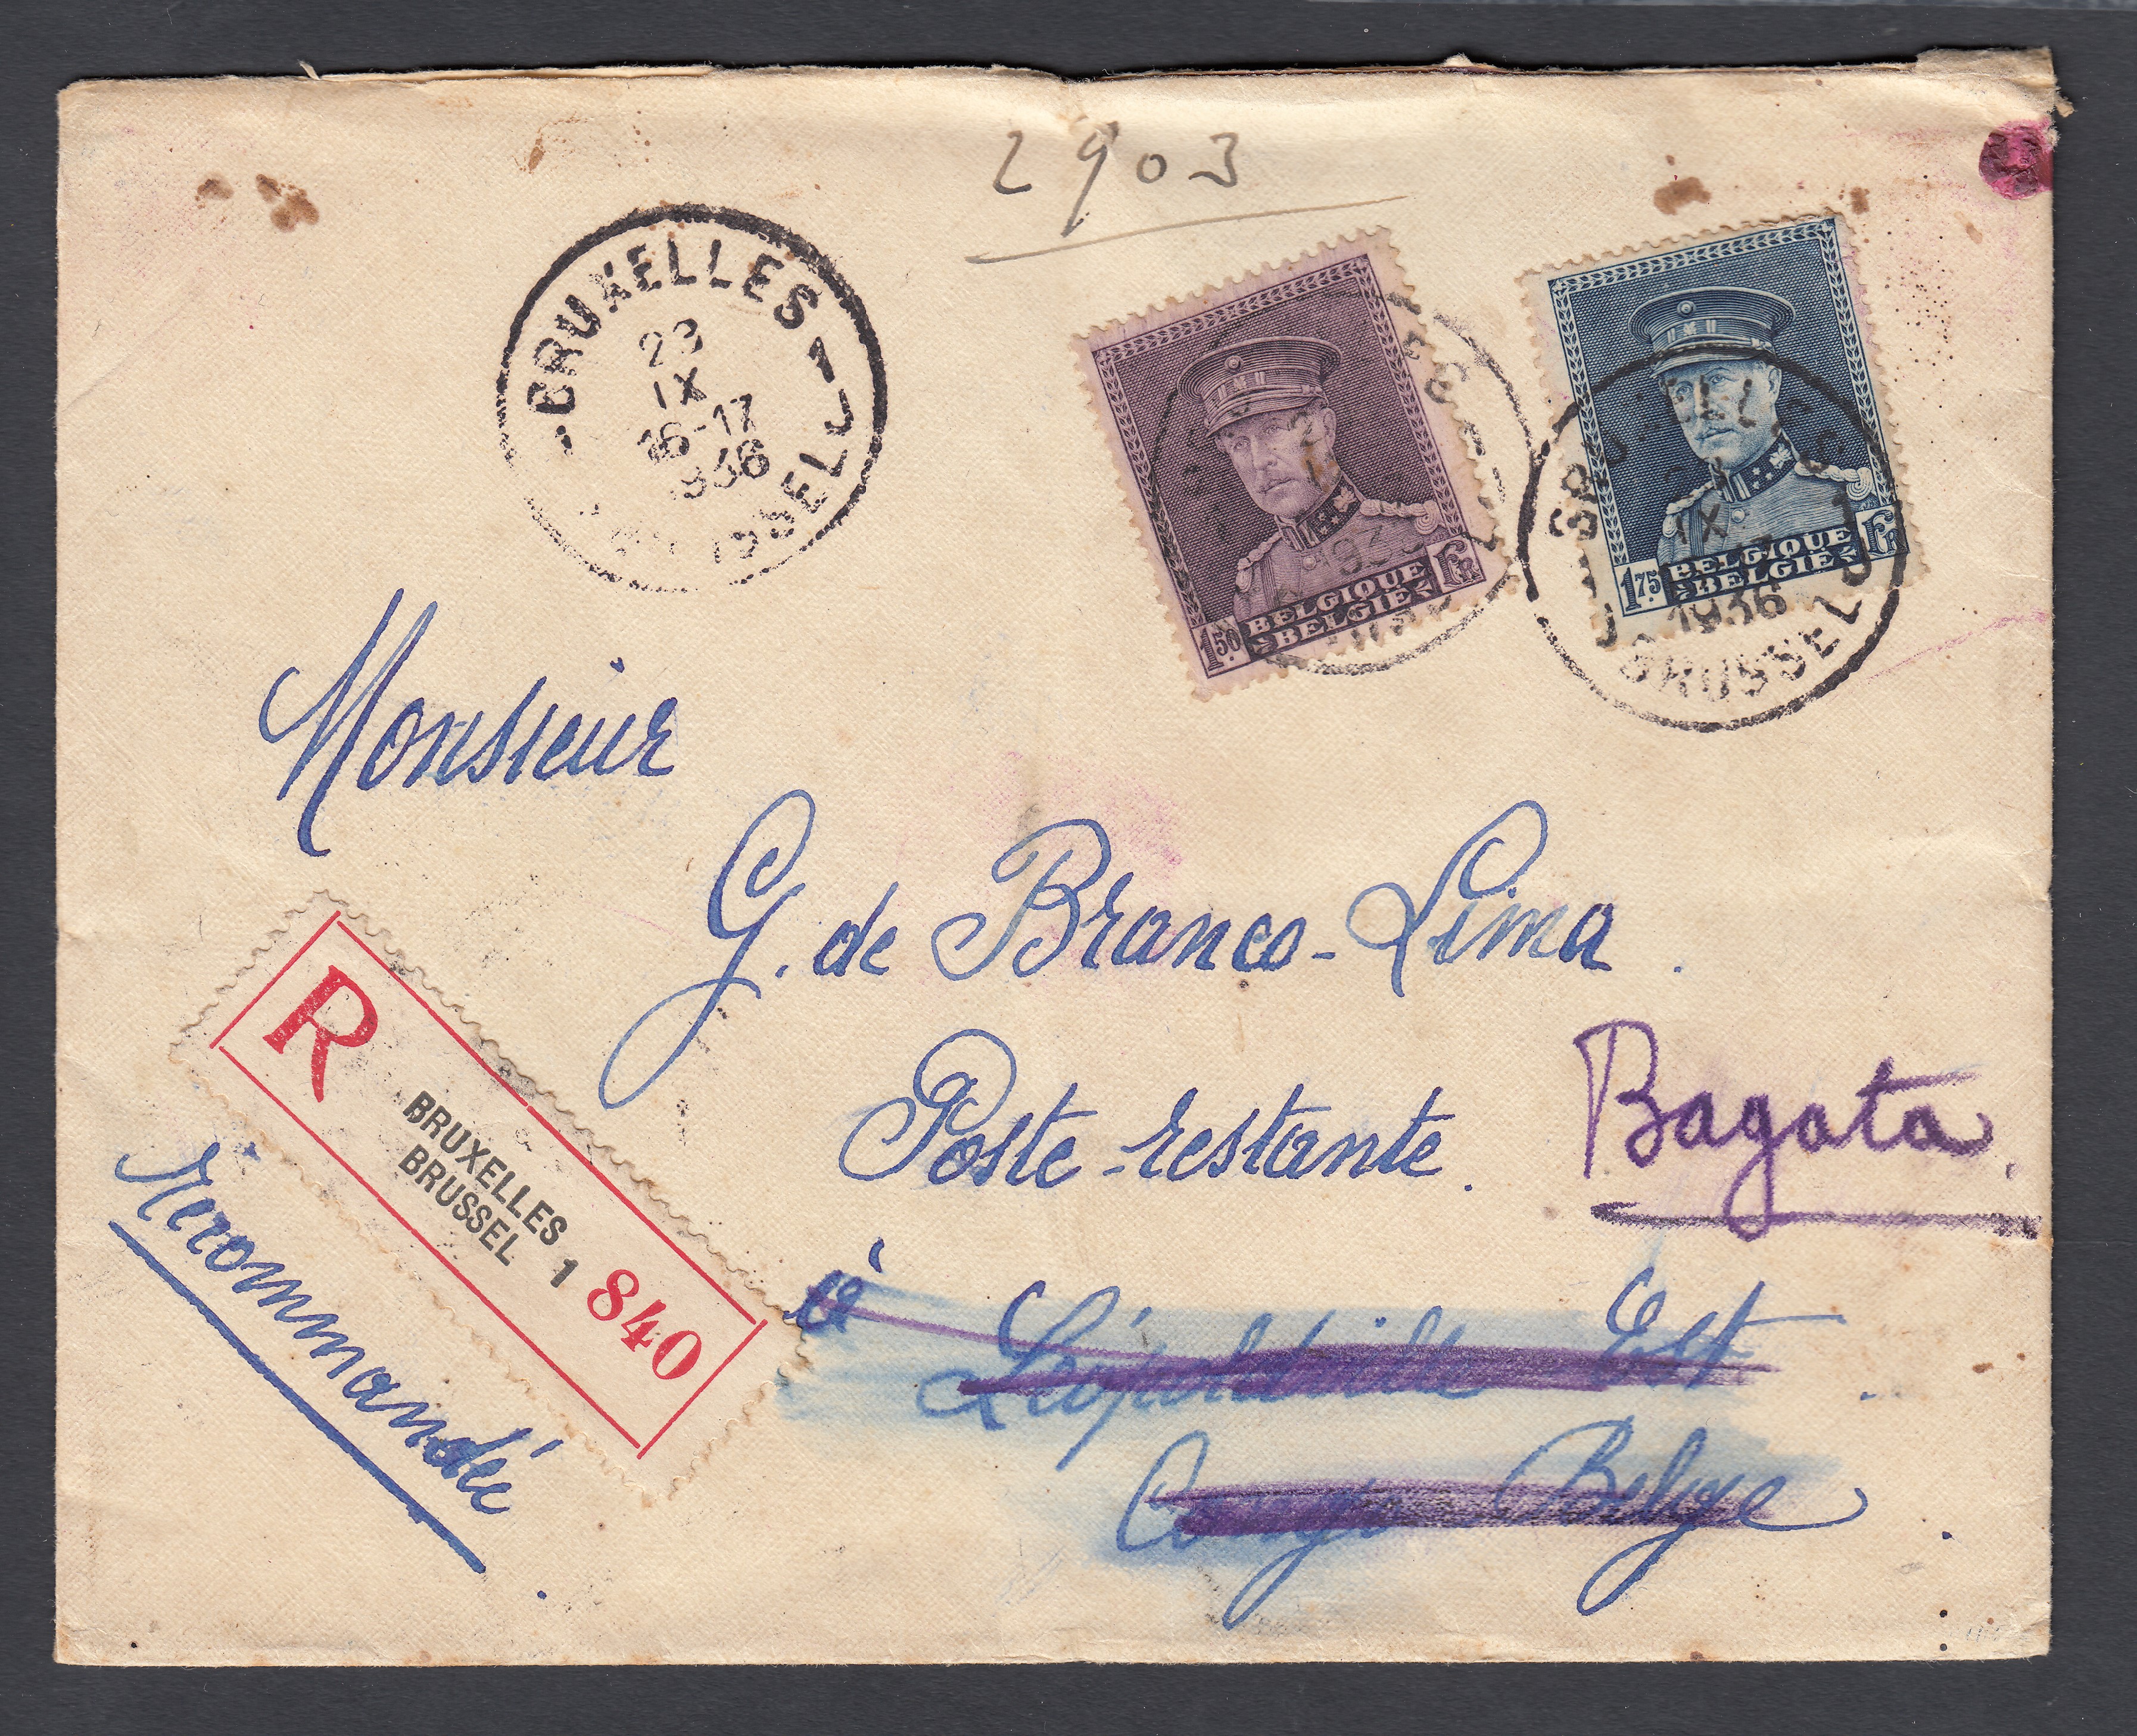 2903
BRUXELLES 1
23
IX
16-17
1936
BRUSSEL
1
1.50 BELGIQUE Fr
BELGIË
BRUXELLES
IX
1936
BRUSSEL
1.75 BELGIQUE Fr
BELGIË
Monsieur
G. de Branco-Lima.
Poste-restante. Bagata.
à Léopoldville Est
Congo Belge.
R
BRUXELLES
BRUSSEL 1
840
Recommandé.